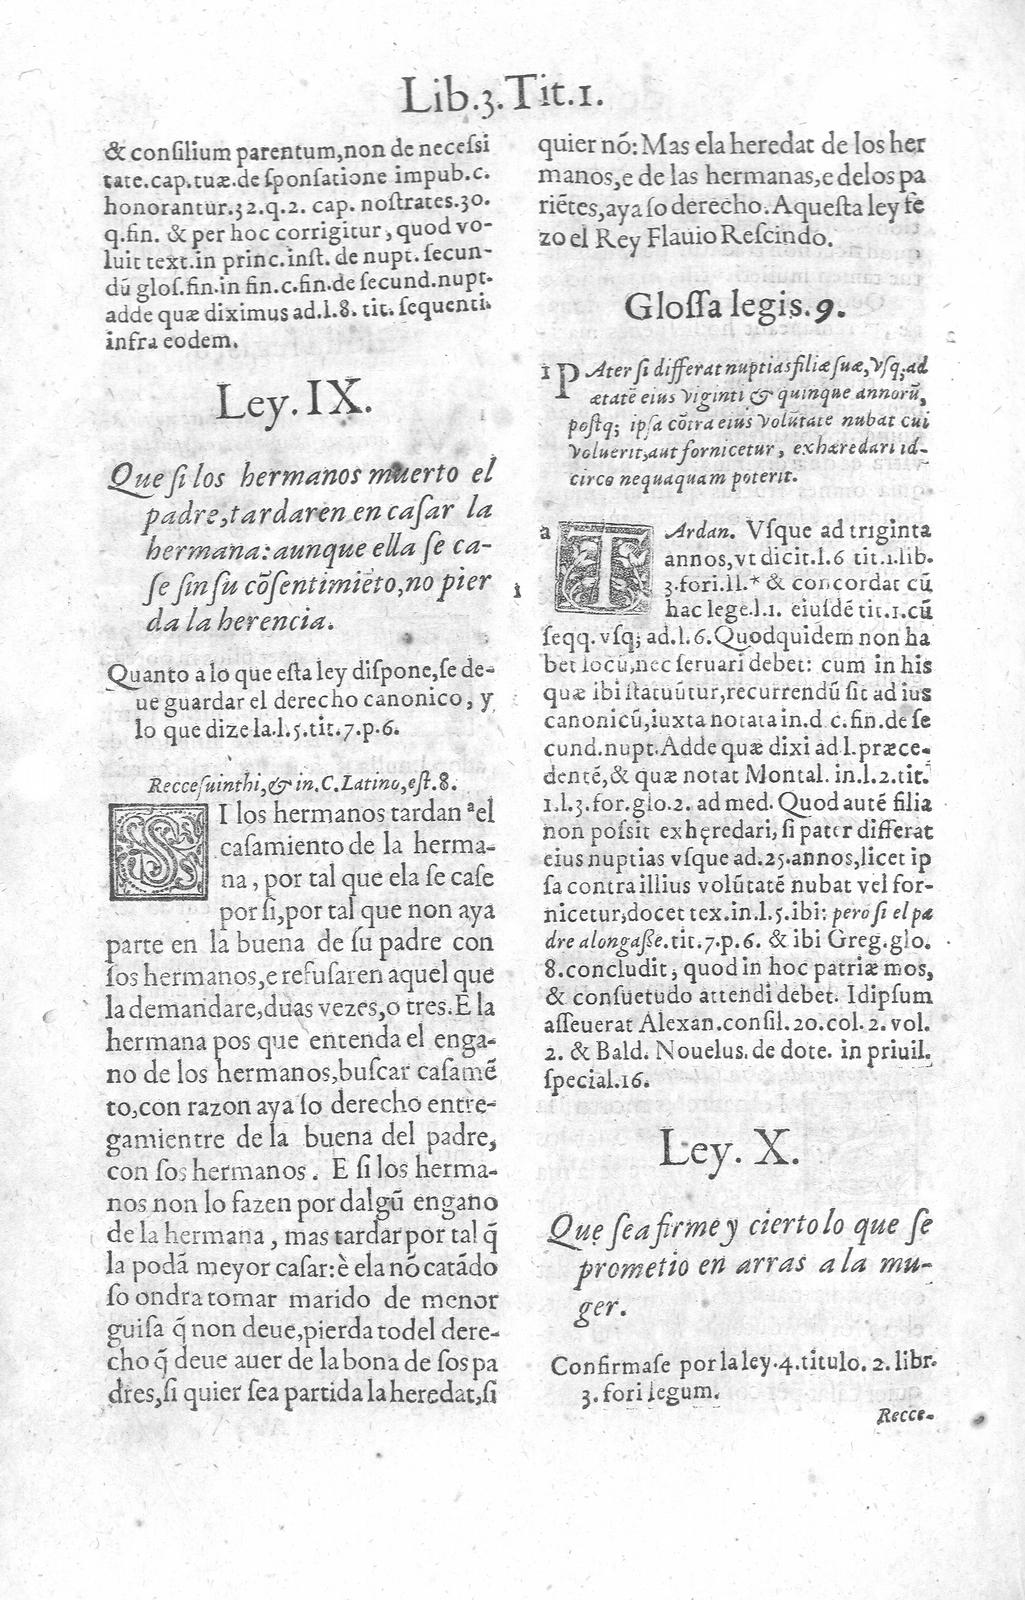 Lib.3.Tit.1.
& conſilium parentum,non de neceſsi
tate.cap.tuæ.de ſponſatione impub.c.
honorantur.32.q.2. cap. noſtrates.30.
q.fin. & per hoc corrigitur, quod vo-
luit text.in princ.inſt. de nupt. ſecun-
dū gloſ.fin.in fin.c.fin.de ſecund.nupt.
adde quæ diximus ad.l.8. tit. ſequenti.
infra eodem.
Ley.IX.
Que ſi los hermanos muerto el
padre,tardaren en caſar la
hermana:aunque ella ſe ca-
ſe ſin ſu cōſentimiēto,no pier
da la herencia.
Quanto a lo que eſta ley diſpone,ſe de-
ue guardar el derecho canonico, y
lo que dize la.l.5.tit.7.p.6.
Recceſuinthi,& in.C.Latino,eſt.8.
SI los hermanos tardan ªel
caſamiento de la herma-
na, por tal que ela ſe caſe
por ſi,por tal que non aya
parte en la buena de ſu padre con
ſos hermanos,e refuſaren aquel que
la demandare,duas vezes,o tres.E la
hermana pos que entenda el enga-
no de los hermanos,buſcar caſamē
to,con razon aya ſo derecho entre-
gamientre de la buena del padre,
con ſos hermanos. E ſi los herma-
nos non lo fazen por dalgū engano
de la hermana, mas tardar por tal q̄
la podā meyor caſar:è ela nō catādo
ſo ondra tomar marido de menor
guiſa q̄ non deue,pierda todel dere-
cho q̄ deue auer de la bona de ſos pa
dres,ſi quier ſea partida la heredat,ſi
quier nō: Mas ela heredat de los her
manos,e de las hermanas,e delos pa
riētes,aya ſo derecho. Aqueſta ley fe
zo el Rey Flauio Reſcindo.
Gloſſa legis.9.
1 PAter ſi differat nuptias filiæ ſuæ, vſq; ad
ætatē eius viginti & quinque annorū,
poſtq; ipſa cōtra eius volūtate nubat cui
voluerit,aut fornicetur, exhæredari id-
circo nequaquam poterit.
a TArdan. Vſque ad triginta
annos,vt dicit.l.6 tit.1.lib.
3.fori.ll.* & concordat cū
1 hac lege.l.1. eiuſdē tit.1.cū
ſeqq. vſq; ad.l.6.Quodquidem non ha
bet locū,nec ſeruari debet: cum in his
quæ ibi ſtatuūtur,recurrendū ſit ad ius
canonicū,iuxta notata in.d c.fin.de ſe
cund.nupt.Adde quæ dixi ad l.præce-
dentē,& quæ notat Montal. in.l.2.tit.
1.l.3.for.glo.2. ad med. Quod autē filia
non poſsit exhęredari, ſi pater differat
eius nuptias vſque ad.25.annos,licet ip
ſa contra illius volūtatē nubat vel for-
nicetur,docet tex.in.l.5.ibi: pero ſi el pa
dre alongaſſe.tit.7.p.6. & ibi Greg.glo.
8.concludit; quod in hoc patriæ mos,
& conſuetudo attendi debet. Idipſum
aſſeuerat Alexan.conſil.20.col.2. vol.
2. & Bald. Nouelus.de dote. in priuil.
ſpecial.16.
Ley. X.
Que ſea firme y cierto lo que ſe
prometio en arras a la mu-
ger.
Confirmaſe por la ley.4.titulo.2.libr.
3.fori legum.
Recce-